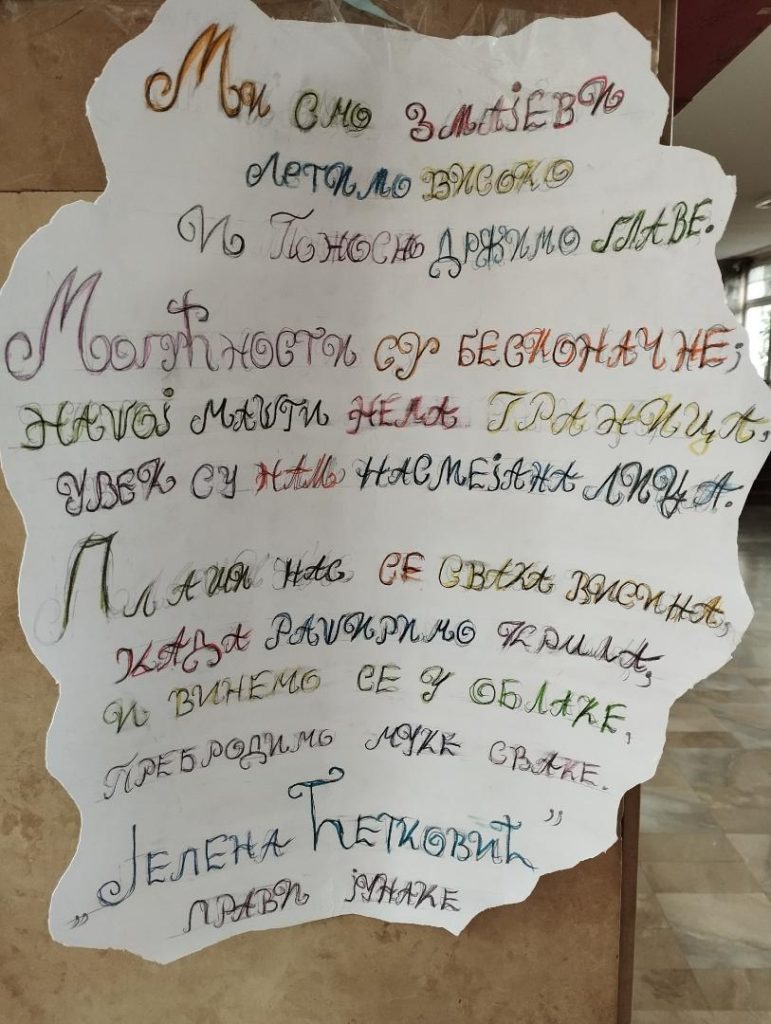 Ми смо змајеви
летимо високо
и поносно држимо главе.
Могућности су бесконачне;
нашој машти нема граница,
увек су нам насмејана лица.
Плаши нас се свака висина,
када раширимо крила,
и винемо се у облаке,
пребродимо муке сваке.
„Јелена Ћетковић”
прави јунаке